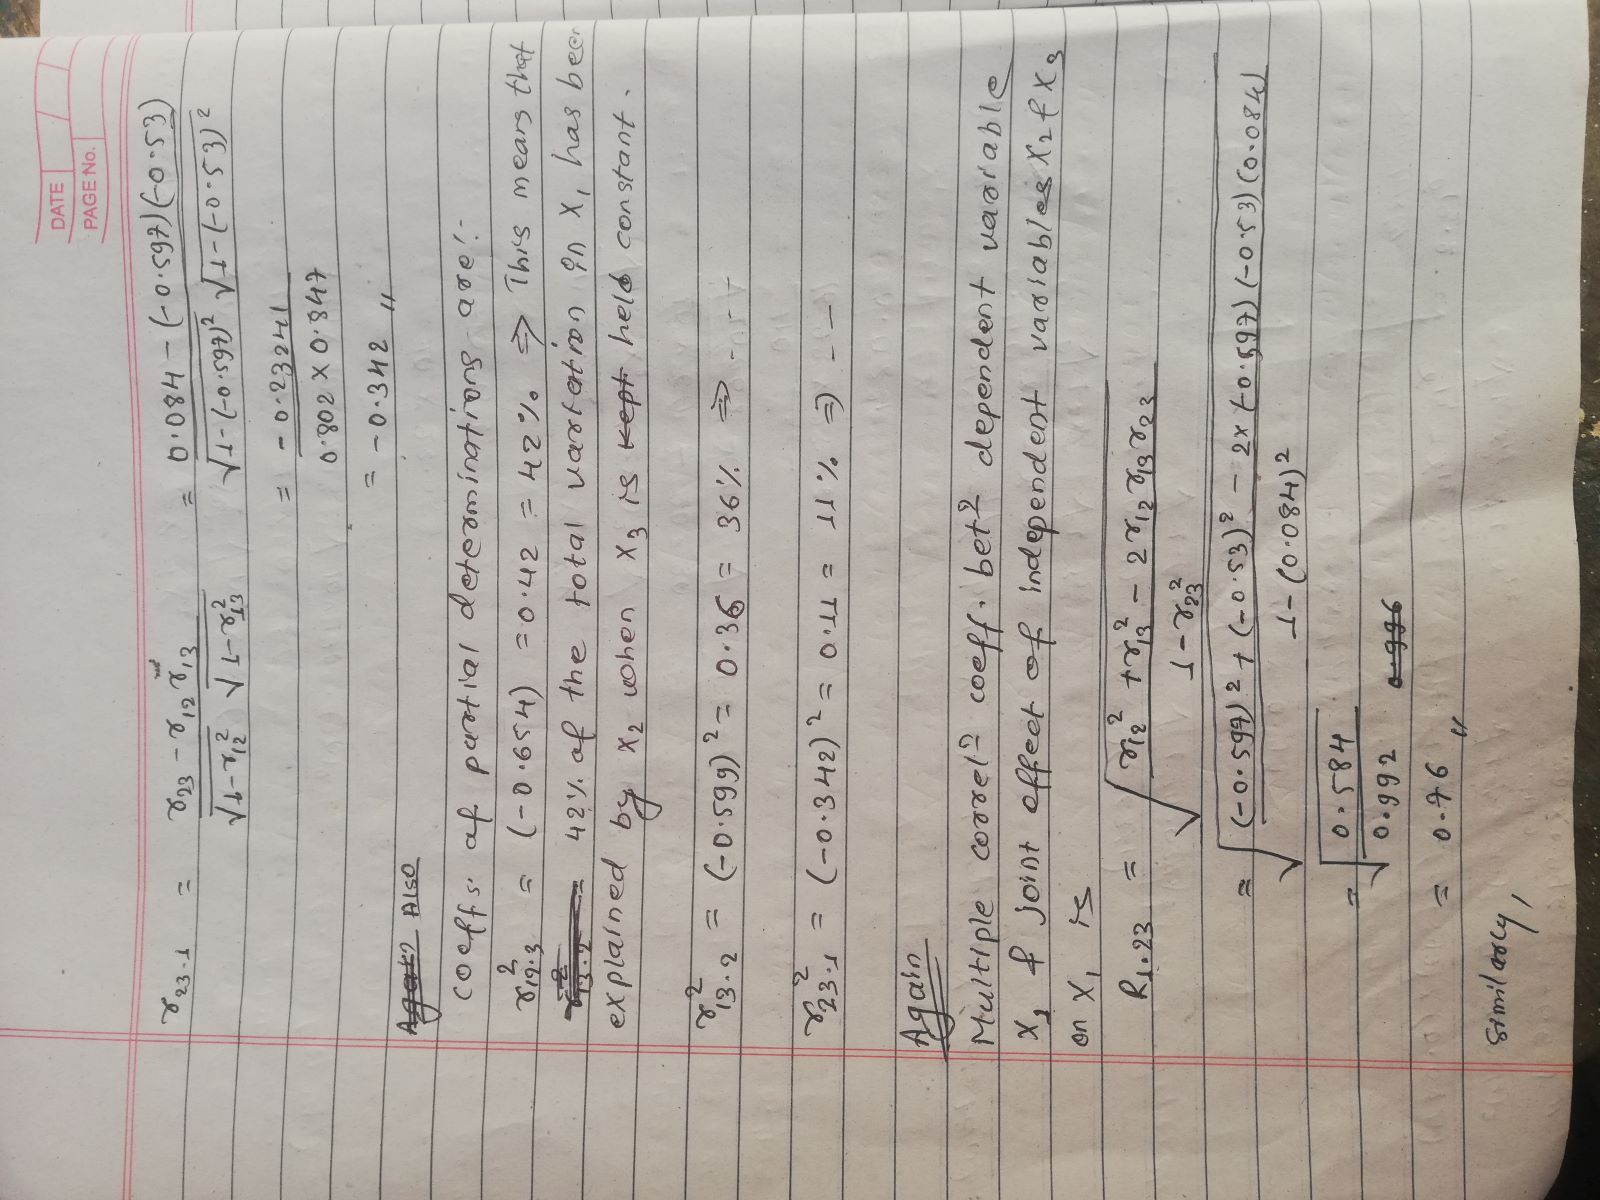 DATE
PAGE No.
r₂₃.₁ = (r₂₃ - r₁₂ r₁₃) / (√(1-r₁₂²) √(1-r₁₃²)) = (0.084 - (-0.597)(-0.53)) / (√(1-(-0.597)²) √(1-(-0.53)²))
= -0.23241 / (0.802 × 0.847)
= -0.342 〃
Also
coeffs. of partial determinations are:-
r₁₂.₃² = (-0.654) = 0.42 = 42% ⇒ This means that
42% of the total variation in X₁ has been
explained by X₂ when X₃ is held constant.
r₁₃.₂² = (-0.599)² = 0.36 = 36% ⇒ - - -
r₂₃.₁² = (-0.342)² = 0.11 = 11% ⇒ - -
Again
Multiple correlⁿ coeff. betⁿ dependent variable
X₁ & joint effect of independent variables X₂ & X₃
on X₁ is
R₁.₂₃ = √((r₁₂² + r₁₃² - 2 r₁₂ r₁₃ r₂₃) / (1 - r₂₃²))
= √(((-0.597)² + (-0.53)² - 2×(-0.597)(-0.53)(0.084)) / (1-(0.084)²))
= √(0.584 / 0.992)
= 0.76 〃
Similarly,